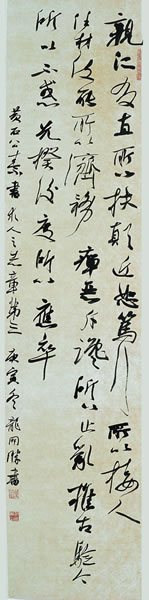 親仁友直所以扶顛近恕篤行所以接人
任材使能所以濟務癉惡斥讒所以止亂推古驗今
所以不惑先揆後度所以應卒
黄石公素書求人之志章第三庚寅冬龍開勝書